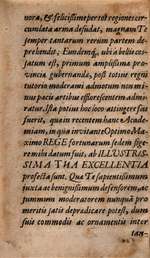 nora, & felicissime per tot regiones cir-
cumlata arma desudas, magnam Te
semper tantarum rerum partem de-
prehendis; Eundemq; ubi à belli tos
satum est, primum amplissima pro-
vincia gubernandâ, post totius regni
tutorio moderami admotum non mi-
nus pacis artibus efflorescentem admi-
ratur. Ista potius hoc loco attingenda es-
suerit, qua in recentem hanc Acade-
miam, in qua invitante Optimo Ma-
ximo REGE fortunarum sedem fige-
re mihi datum fuit, ab ILLUSTRIS-
SIMA TUA EXCELLENTIA
profecta sunt. Qua Te sapientissimum
juxta ac benignissimum defensorem, ac
summum moderatorem nunquã pro
meritis satis depradicare potest, dum
suis commodis ac ornamentis inter
tan-